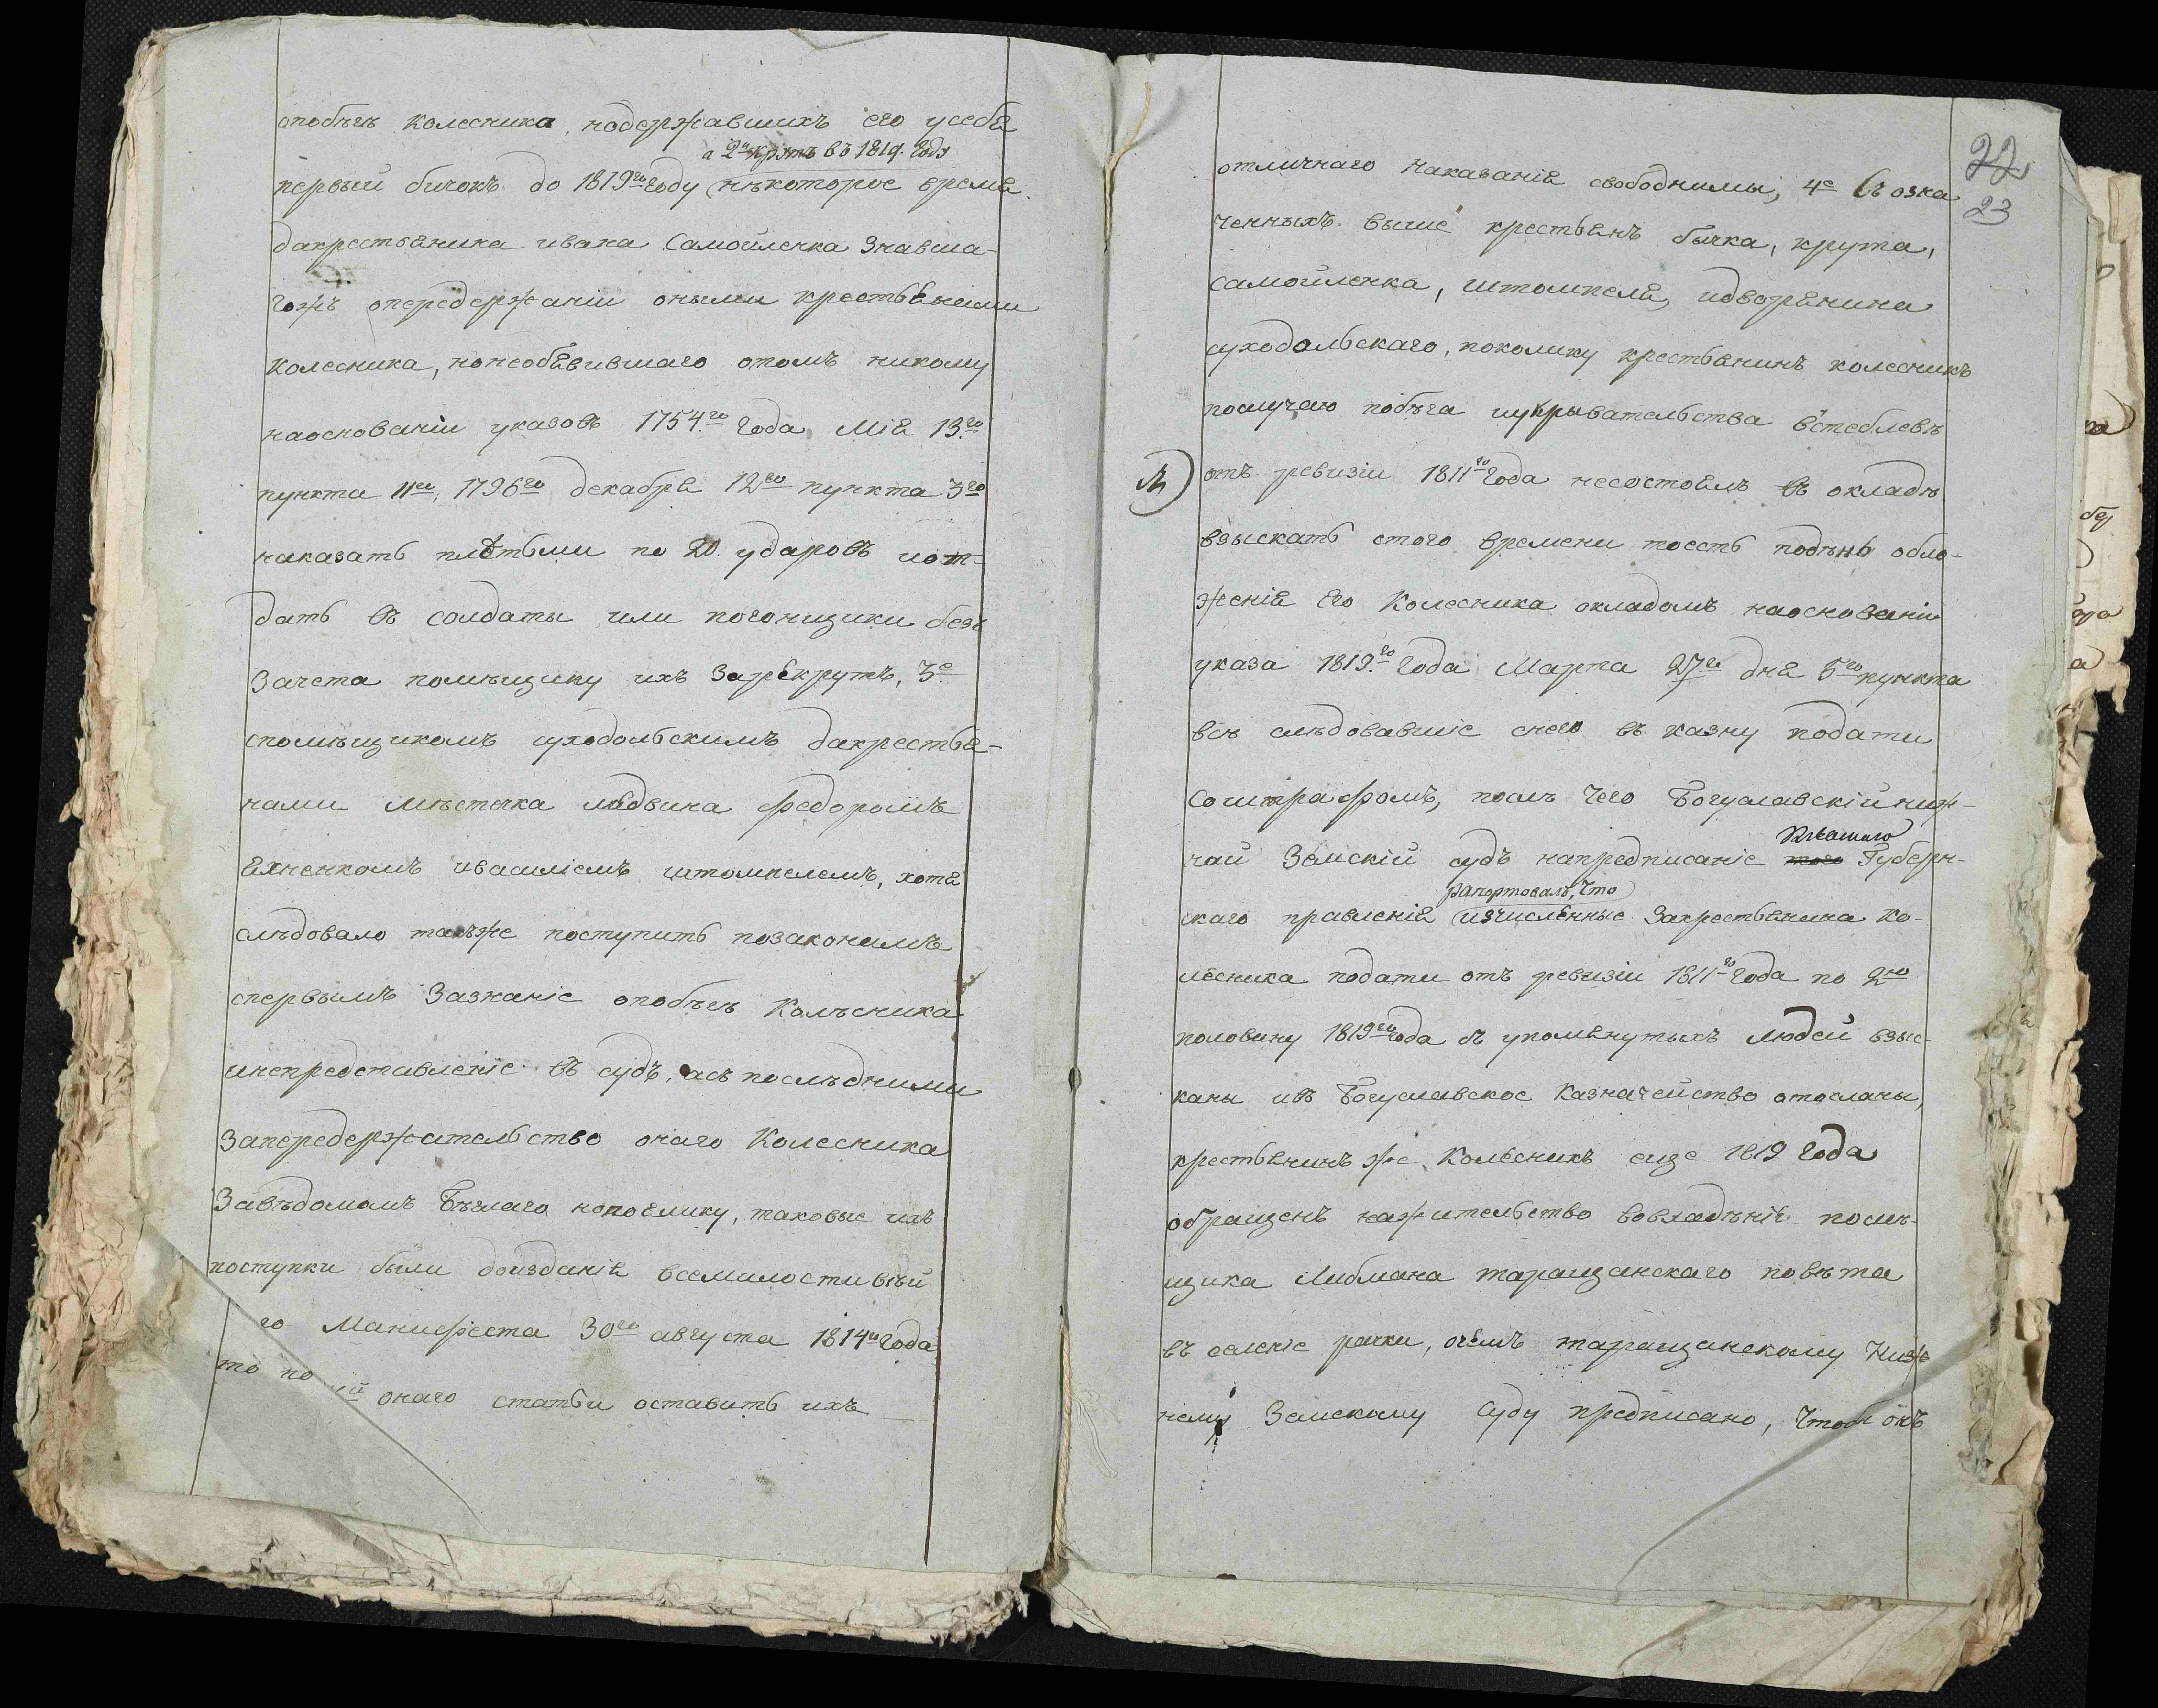 опобѣгѣ Колесника, нодержавшихъ его усебя
а 2й крутъ въ 1819. году
первый бичокъ до 1819го году нѣкоторое время
дакрестьянина ивана Самойленка Знавша-
гожъ опередержаніи оными крестьянами
Колесника, нонеобявившаго отомъ никому
наоснованіи указовъ 1754го года Мія 13го
пункта 11го, 1796го декабря 12го пункта 3го
наказать плѣтьми по 20. ударовъ иот-
дать въ солдаты или погонщики безъ
Зачета помѣщику ихъ Зарекрутъ, 3е
спомѣщикомъ суходольскимъ дакрестья-
нами мѣстечка лядвина федоромъ
яхненкомъ ивасиліемъ штомпелемъ, хотя
слѣдовало такъже поступить позаконамъ
спервымъ Зазнаніе опобѣгѣ Колѣсника
инепредставленіе въ судъ, асъ послѣдними
Запередержательство онаго Колесника
Завѣдомомъ Бѣглаго нопоелику, таковые ихъ
поступки были доизданія всемилостивѣй
го Манифеста 30го августа 1814го года
то по й онаго статьи оставить ихъ
22
23
отличнаго наказанія свободными, 4е Съ озна
ченныхъ выше крестьянъ бычка, крута,
самойленка, штомпеля, идворянина
суходольскаго, поколику крестьянинъ колесникъ
послучаю побѣга иукрывательства встеблевѣ
отъ ревизіи 1811го года несостоялъ въ окладѣ
взыскать стого времени тоесть подѣнь обло-
женія Его Колесника окладомъ наоснованіи
указа 1819го года Марта 27го дня 5го пункта
всѣ слѣдовавшіе снего въ казну подати
соштрафомъ, послѣ чего Богуславскій ниж-
ній Земскій судъ напредписаніе того Губерн-
рапортовалъ, что
скаго правленія изчисленные Закрестьянина Ко-
лесника подати отъ ревизіи 1811го года по 2ю
половину 1819го года съ упомянутыхъ людей взыс-
каны ивъ Богуславское Казначейство отосланы,
крестьянинъ же Колѣсникъ еще 1819 года
обращенъ нажительство вовладѣніе помѣ-
щика Либмана таращанскаго повѣта
въ селеніе рачки, очемъ таращанскому Ниж
нему Земскому Суду предписано, чтобъ онъ